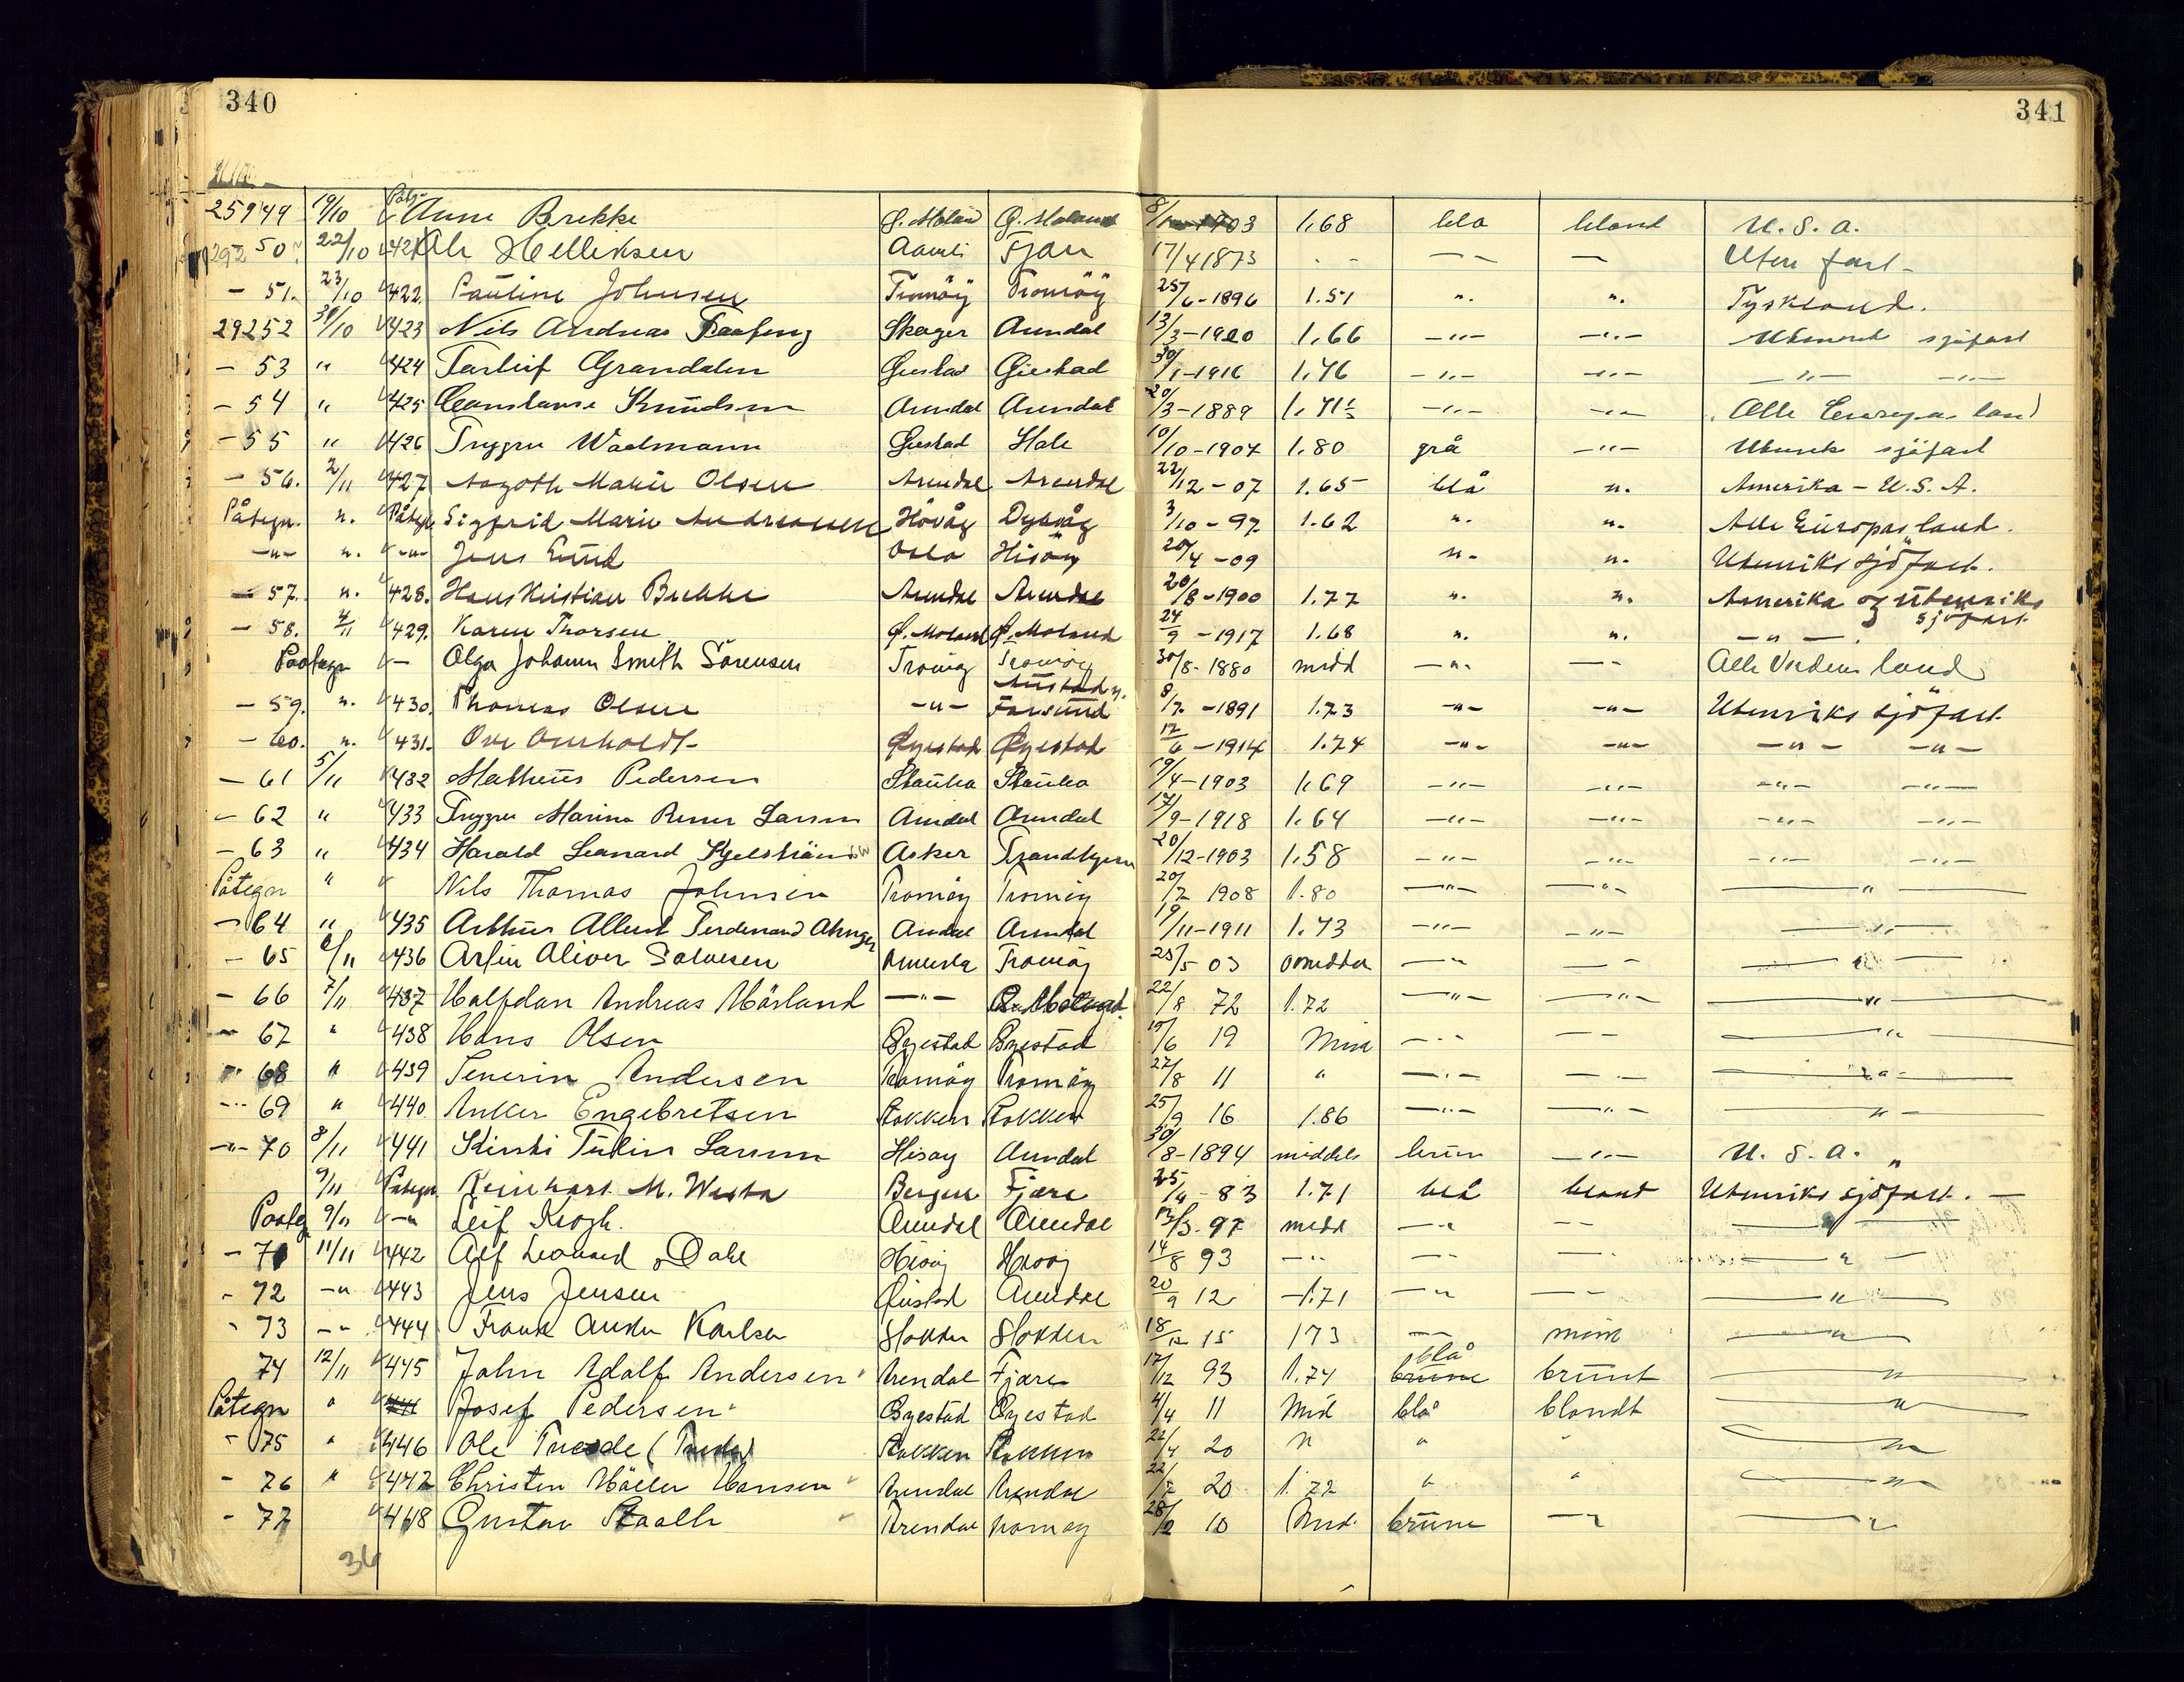 340
341
25949 19/10 Påtg. Anne Brekke Ø. Moland Ø. Moland 8/ 1903 1,68 blå blond U. S. A.
292 50. 22/10 421 Ole Helliksen Aamli Fjære 17/4 1873 - - — — Uten fart -
- 51. 23/10 422 Pauline Johnsen Tromöy Tromöy 25/6 - 1896 1.51 ". ". Tyskland.
29252 /10 423 Nils Andreas Skager Arendal 13/3 - 1920 1,66 -"- -"- Utenrik sjöfart
- 53 " 424 Tarleif Grandalen Gjestad Gjestad 30/1 - 1916 1,76 -"- -"- -"- -"-
- 54 " 425 Constanse Knudsen Arendal Arendal 20/3 - 1889 1,71½ -"- -"- Alle Europas land
- 55 " 426 Trygve Wadmann Gjestad Hole 10/10 - 1904 1.80 grå -"- Utenrik sjöfart
- 56. 2/11 427 Aagoth Marie Olsen Arendal Arendal 22/12 - 07 1.65 blå ". Amerika - U.S.A.
Påtegn. ". Påtegn Sigfrid Marie Andreassen Hövåg Dypvåg 3/10 - 97 1.62 ". ". Alle Europas land.
-"- ". -"- Jens Lund Oslo Hisöy 20/4 - 09 ". ". Utenriks sjöfart.
- 57. ". 428. Hans Kristian Brekke Arendal Arendal 20/8 - 1900 1.77 ". ". Amerika og utenriks sjöfart
- 58. 4/11 429. Karen Thorsen Ø. Moland Ø. Moland 24/9 - 1917 1.68 ". ". -"-
Paategn - Olga Johanne Smith Sörensen Tromöy Tromöy 30/8 - 1880 midd -"- -"- Alle Verdens land
- 59. ". 430. Thomas Olsen -"- Farsund 8/7 - 1891 1.73 -"- -"- Utenriks sjöfart
- 60. ". 431. Ove Overholdt Øyestad Øyestad 12/6 - 1914 1.74 -"- -"- -"- -"-
- 61 5/11 432 Matheus Pedersen 19/4 - 1903 1,69 -"- -"- -"- -"-
- 62 " 433 Trygve Marina Larsen Arendal Arendal 17/9 - 1918 1.64 -"- -"- -"- -"-
- 63 " 434 Harald Leonard Kjelström Asker 20/12 - 1903 1.58 -"- -"- -"- -"-
Påtegn " Nils Thomas Johnsen Tromöy Tromöy 20/2 1908 1.80 -"- -"- -"-
- 64 " 435 Arthur Albert Ferdinand Arendal Arendal 19/11 - 1911 1.73 -"- -"- -"-
- 65 6/11 436 Arfin Oliver Salvesen Tromöy 25/5 03 -"- -"- -"-
- 66 7/11 437 Halfdan Andreas Hörland -"- 22/8 72 1.72 -"- -"- -"-
- 67 " 438 Hans Olsen Øyestad Øyestad 15/6 19 -"- -"- -"-
- 68 " 439 Severin Andersen Tromöy Tromöy 27/8 11 " -"- -"- -"-
- 69 " 440 Anker Engebretsen Stokken Stokken 25/9 16 1.86 -"- -"- -"-
-"- 70 8/11 441 Larsen Hisöy Arendal 30/8 - 1894 middels brun -"- U. S. A.
9/11 Påtegn. Reinhart M. Weste Bergen Fjære 25/4 - 83 1.71 blå blond Utenriks sjöfart. -
Paateg 9/11 -" Leif Krogh. Arendal Arendal 13/3. 97 midd -"- -- -"-
- 71 11/11 442 Alf Leonard Dahl Hisöy Hisöy 14/8 93 -"- -"- -"- -"-
- 72 -" 443 Jens Jensen Øiestad Arendal 20/9 12 1.71 -"- -- -"-
- 73 -- 444 Frank Anker Karlsen Stokken Stokken 18/12 15 173 -- mørk -"-
74 12/11 445 John Adolf Andersen Arendal Fjære 17/12 93 1.74 brune blå brunt -"-
Påtegn " Josef Pedersen Øyestad Øyestad 4/4 11 Mid blå blondt -"-
- 75 " 446 Ole Stokken Stokken 22/4 20 " " " -"-
- 76 " 447 Christen Möller Hansen Arendal Arendal 22/7 20 1.72 " " -"-
- 77 448 Gustav Staalle Arendal Tromöy 28/2 10 Mid. brune -"- -"-
36